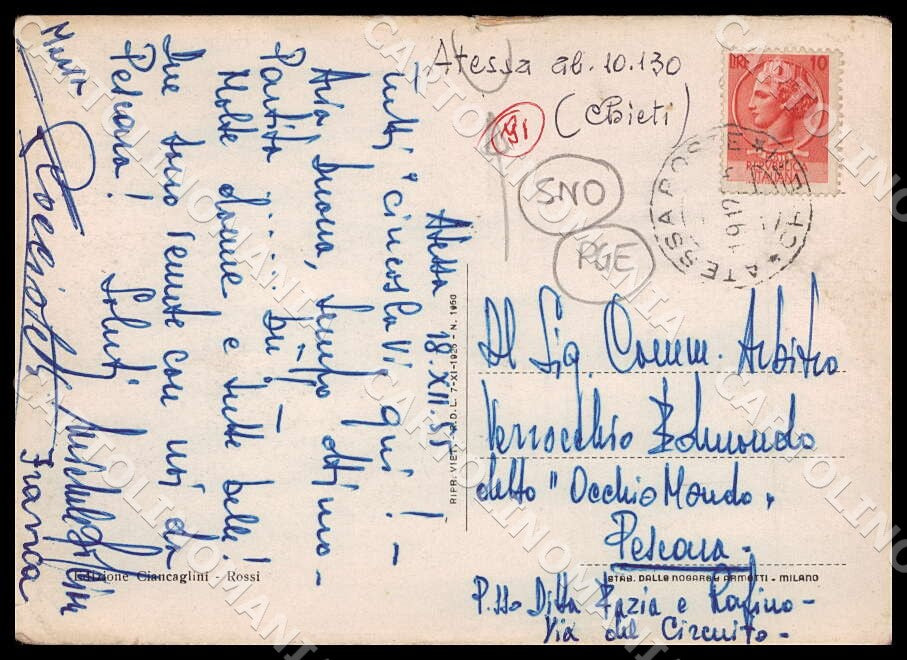 Atessa ab. 10.130
(Chieti)
SNO
PGE
LIRE 10
REPUBBLICA
ITALIANA
ATESSA POSTE
* CHIETI *
Atessa 18.XII.55
Tutti "circoslavi" qui! -
Aria buona, tempo ottimo -
Partita
Molte donne e tutte belle!
Due sono venute con noi da
Pescara!
Saluti
Franca
Al Sig. Comm. Arbitro
Verrocchio Edmondo
detto "Occhio Mondo"
Pescara -
P.sso Ditta Fazia e Rofino -
Via del Circuito -
RIPR. VIET. - R.D.L. 7-XI-1925 - N. 1950
Edizione Ciancaglini - Rossi
STAB. DALLE NOGARE E ARMETTI - MILANO
CARTOLINOMANIA